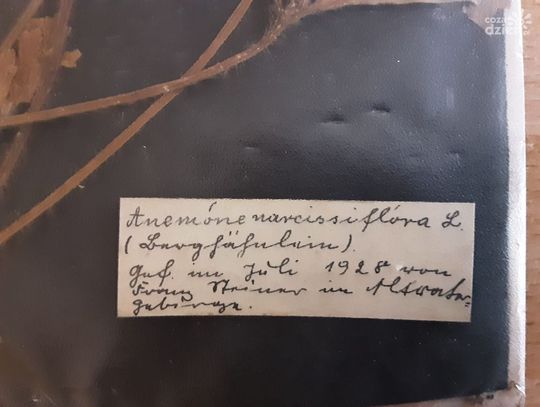 coza
dzień
Anemóne narcissiflóra L.
(Berghähnlein).
Gef. im Juli 1928 von
Franz Steiner im Altvater-
gebirge.